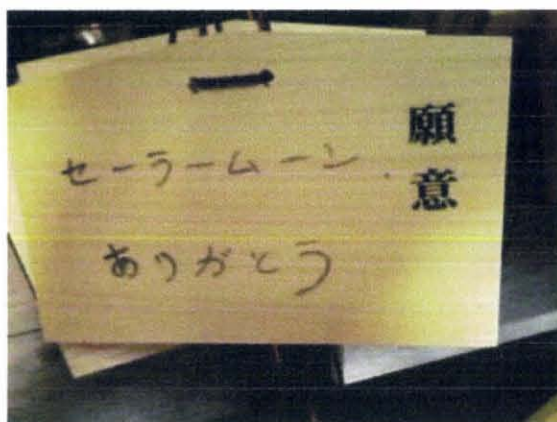 願意
セーラームーン.
ありがとう